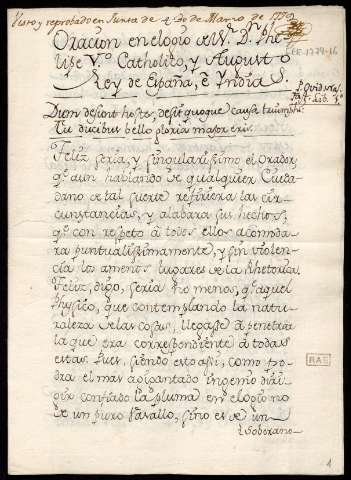 Visto y reprobado en Junta de 4 de Marzo de 1779
Oracion en elogio de Nro. Dn. Phe-
lipe V.º Catholico, y Augusto
Rey de España, è Yndias.
RAE-1779-16
P. Ovid. Nas.
Fa. Lib.
Dum desint hostes, desit quoque causa triumphi:
Tu ducibus bello gloria major eris.
Feliz seria, y singularissimo el Orador,
qe. aun hablando de qualquier Ciuda-
dano de tal suerte refiriera las cir-
cunstancias, y alabara sus hechos,
qe. con respeto à todos ellos acomoda-
ra puntualissimamente, y sin violen-
cia los amenos lugares de la Rhetorica.
Feliz, digo, seria no menos, qe. aquel
Physico, que contemplando la natu-
raleza de las cosas, llegasse à penetrar
la que era correspondiente à todas
estas. Pues, siendo esto assi, como po-
dra el mas adelantado ingenio diri-
gir confiado la pluma en el elogio no
de un puro Vasallo, sino es de un
Soberano
RAE
1